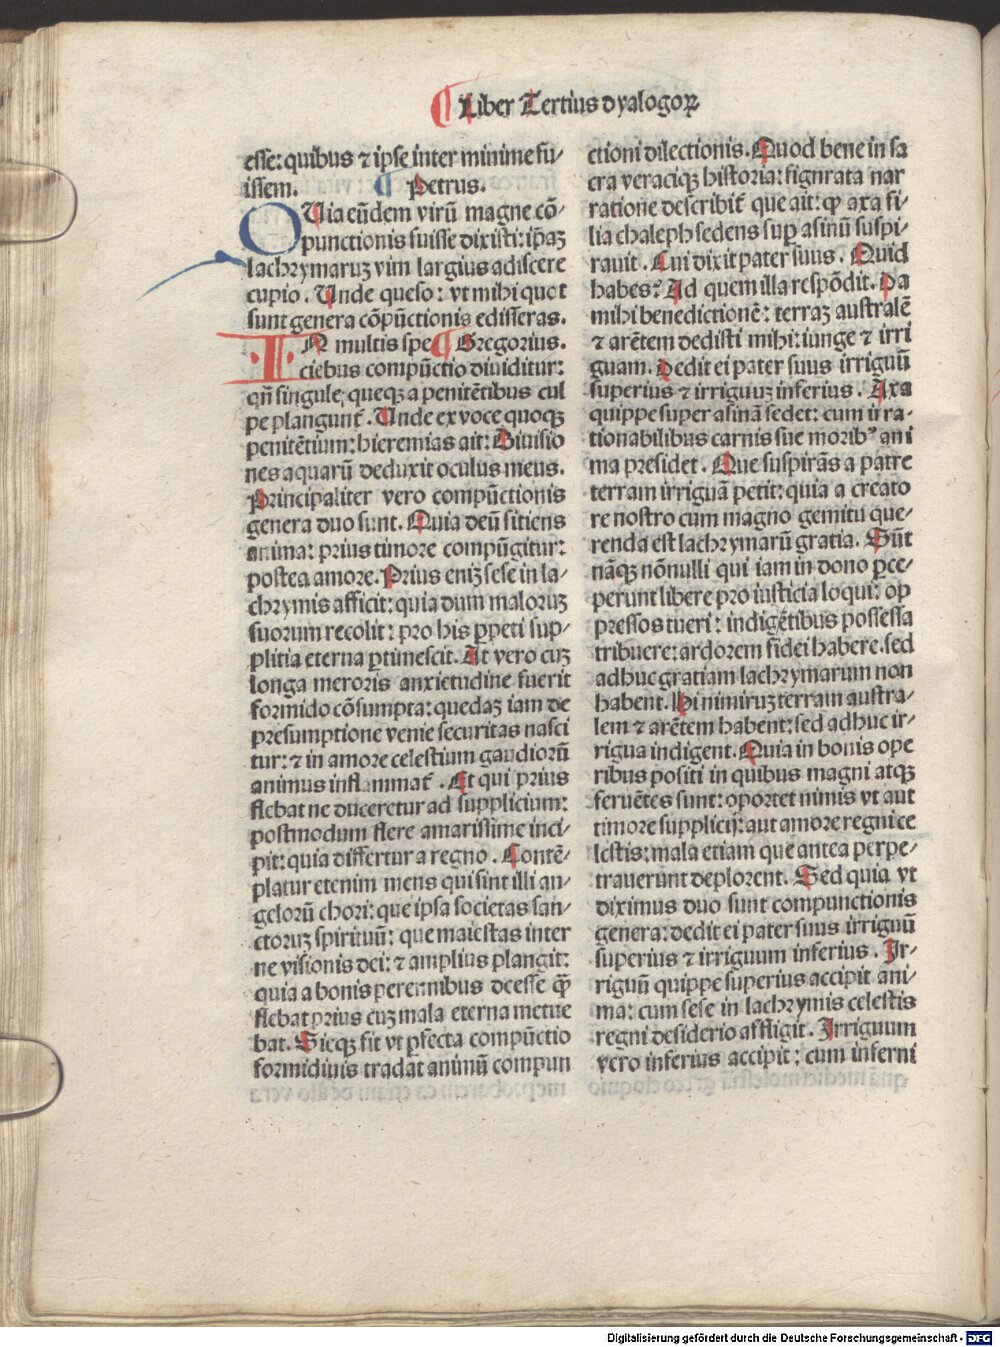 ¶ Liber Tertius dyalogoꝝ
esse: quibus ⁊ ipse inter minime fu⸗
issem. ¶ Petrus.
QUia eūdem virū magne cō⸗
punctionis fuisse dixisti: ip̄aꝫ
lachrymaruꝫ vim largius adiscere
cupio. Unde queso: vt mihi quot
sunt genera cōpūctionis edisseras.
IN multis spe ¶ Gregorius.
ciebus compūctio diuiditur:
qn̄ singule queqꝫ a penitētibus cul
pe plangunt᷑. Unde ex voce quoqꝫ
penitētium: hieremias ait: Diuisio
nes aquarū deduxit oculus meus.
Principaliter vero compūctionis
genera duo sunt. Quia deū sitiens
anima: prius timore compūgitur:
postea amore. Prius eniꝫ sese in la⸗
chrymis afficit: quia dum maloruꝫ
suorum recolit: pro his ꝑpeti sup⸗
plitia eterna ꝑtimescit. At vero cuꝫ
longa meroris anxietudine fuerit
formido cōsumpta: quedaꝫ iam de
presumptione venie securitas nasci
tur: ⁊ in amore celestium gaudiorū
animus inflammat᷑. Et qui prius
flebat ne duceretur ad supplicium:
postmodum flere amarissime inci⸗
pit: quia differtur a regno. Contē⸗
platur etenim mens qui sint illi an⸗
gelorū chori: que ipsa societas san⸗
ctoruꝫ spirituū: que maiestas inter
ne visionis dei: ⁊ amplius plangit:
quia a bonis perennibus deesse q̄ꝫ
flebat prius cuꝫ mala eterna metue
bat. Sicqꝫ fit vt ꝑfecta compūctio
formidinis tradat animū compun
ctioni dilectionis. Quod bene in sa
cra veraciqꝫ historia: fignrata nar
ratione describit᷑ que ait: ꝙ axa fi⸗
lia chaleph sedens suꝑ asinū suspi⸗
rauit. Cui dixit pater suus. Quid
habes? Ad quem illa respōdit. Da
mihi benedictionē: terraꝫ australē
⁊ arētem dedisti mihi: iunge ⁊ irri
guam. Dedit ei pater suus irriguū
superius ⁊ irriguuꝫ inferius. Axa
quippe super asinā sedet: cum irra⸗
tionabilibus carnis sue moribꝰ ani
ma presidet. Que suspirās a patre
terram irriguā petit: quia a creato
re nostro cum magno gemitu que⸗
renda est lachrymarū gratia. Sūt
nāqꝫ nōnulli qui iam in dono ꝑce⸗
perunt libere pro iusticia loqui: op
pressos tueri: indigētibus possessa
tribuere: ardorem fidei habere. sed
adhuc gratiam lachrymarum non
habent. Hi nimiruꝫ terram austra⸗
lem ⁊ arētem habent: sed adhuc ir⸗
rigua indigent. Quia in bonis ope
ribus positi in quibus magni atqꝫ
feruētes sunt: oportet nimis vt aut
timore supplicij: aut amore regni ce
lestis: mala etiam que antea perpe⸗
trauerunt deplorent. Sed quia vt
diximus duo sunt compunctionis
genera: dedit ei pater suus irriguū
superius ⁊ irriguum inferius. Ir⸗
riguū quippe superius accipit ani⸗
ma: cum sese in lachrymis celestis
regni desiderio affligit. Irriguum
vero inferius accipit: cum inferni
Digitalisierung gefördert durch die Deutsche Forschungsgemeinschaft - DFG